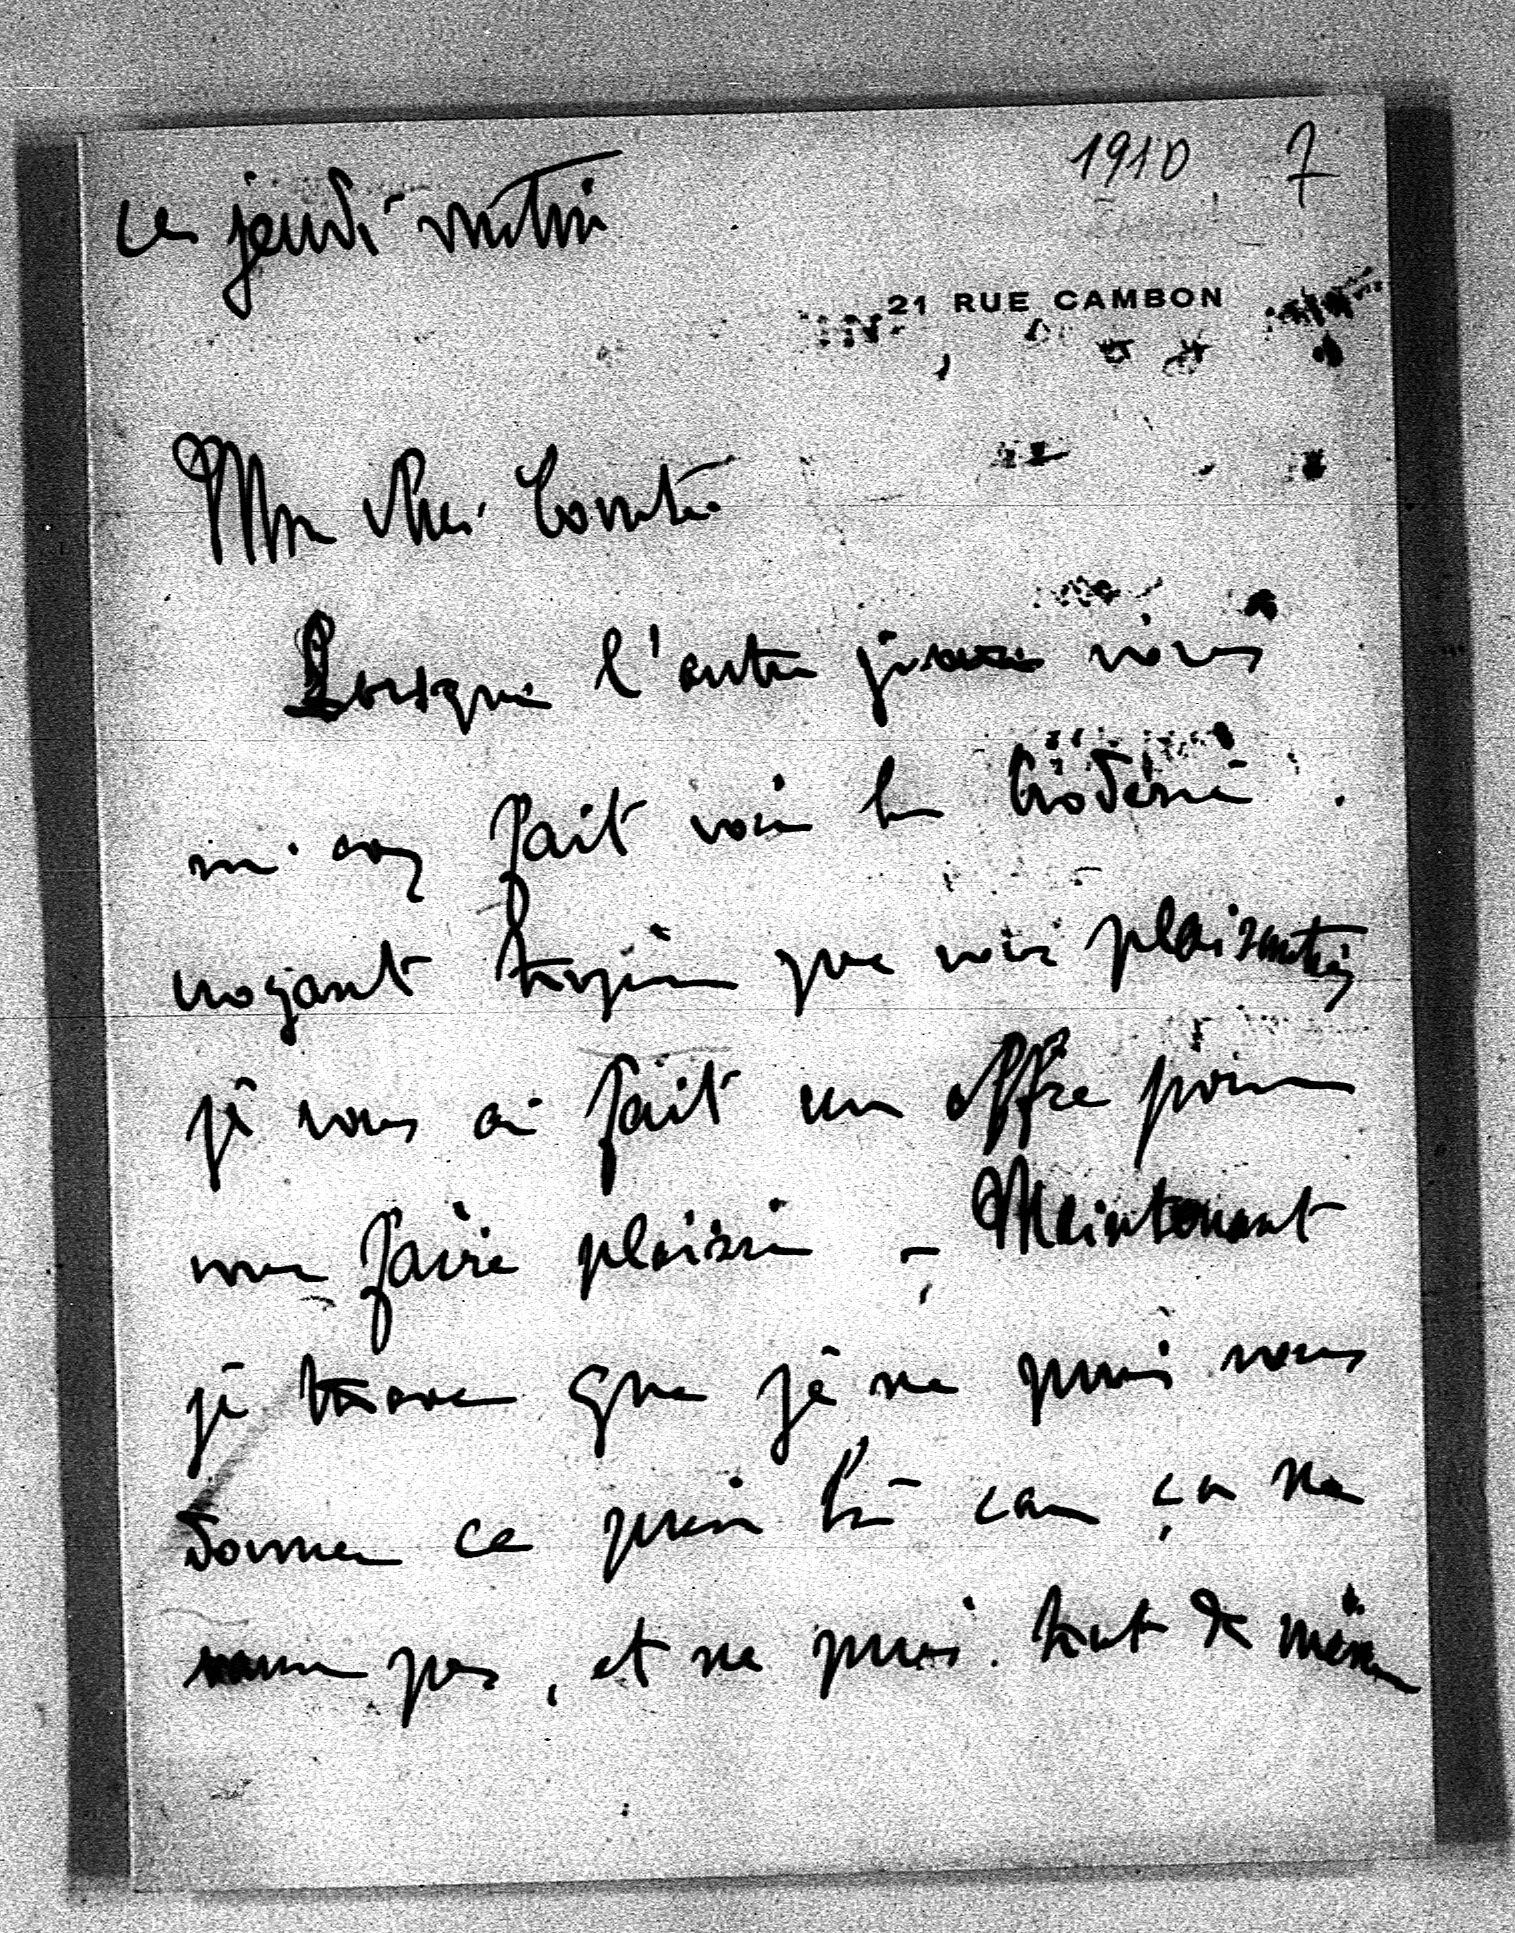 1910 7
ce jeudi matin
21 RUE CAMBON
Mon cher Comte
Lorsque l'autre jour vous
m'avez fait voir la broderie
croyant toujours que vous plaisantiez
je vous ai fait un offre pour
vous faire plaisir - Maintenant
je trouve que je ne puis vous
donner ce prix là car ça ne
vaux pas, et ne puis tout de même